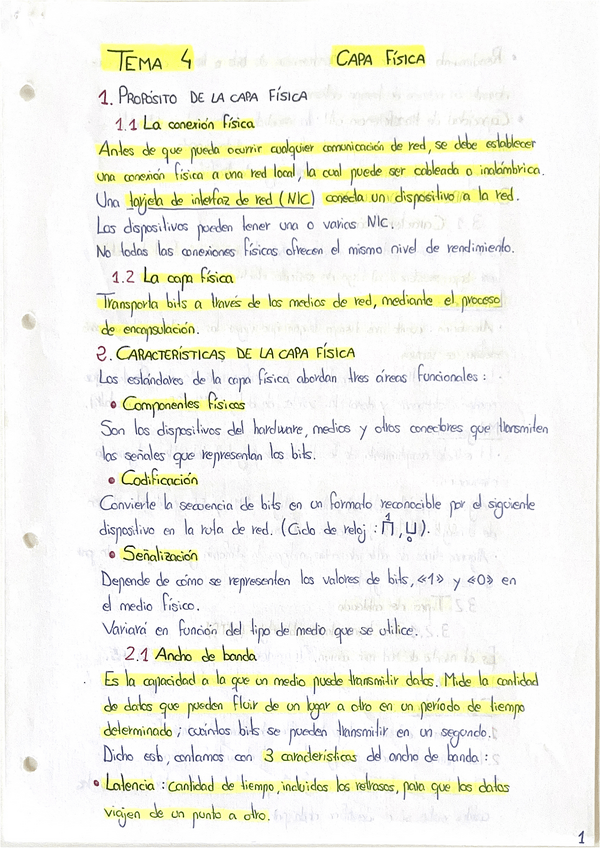 TEMA 4 CAPA FÍSICA
1. PROPÓSITO DE LA CAPA FÍSICA
1.1 La conexión física
Antes de que pueda ocurrir cualquier comunicación de red, se debe establecer
una conexión física a una red local, la cual puede ser cableada o inalámbrica.
Una tarjeta de interfaz de red (NIC) conecta un dispositivo a la red.
Los dispositivos pueden tener una o varios NIC.
No todas las conexiones físicas ofrecen el mismo nivel de rendimiento.
1.2 La capa física
Transporta bits a través de los medios de red, mediante el proceso
de encapsulación.
2. CARACTERÍSTICAS DE LA CAPA FÍSICA
Los estándares de la capa física abordan tres áreas funcionales:
• Componentes físicos
Son los dispositivos del hardware, medios y otros conectores que transmiten
las señales que representan los bits.
• Codificación
Convierte la secuencia de bits en un formato reconocible por el siguiente
dispositivo en la ruta de red. (Ciclo de reloj: 1, 0).
• Señalización
Depende de cómo se representen los valores de bits, «1» y «0» en
el medio físico.
Variará en función del tipo de medio que se utilice.
2.1 Ancho de banda
Es la capacidad a la que un medio puede transmitir datos. Mide la cantidad
de datos que pueden fluir de un lugar a otro en un período de tiempo
determinado; cuántos bits se pueden transmitir en un segundo.
Dicho esto, contamos con 3 características del ancho de banda:
• Latencia: cantidad de tiempo, incluidos los retrasos, para que los datos
viajen de un punto a otro.
1